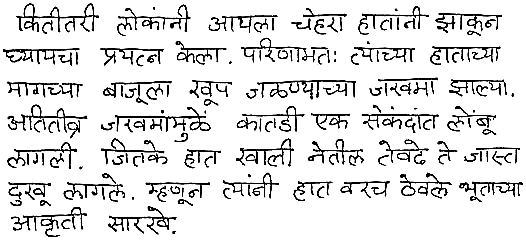 कितीतरी लोकांनी आपला चेहरा हातांनी झाकून
घ्यायचा प्रयत्न केला. परिणामतः त्यांच्या हाताच्या
मागच्या बाजूला खूप जळण्याच्या जखमा झाल्या.
अतितीव्र जखमांमुळे कातडी एक सेकंदात लोंबू
लागली. जितके हात खाली नेतील तेवढे ते जास्त
दुखू लागले. म्हणून त्यांनी हात वरच ठेवले भूताच्या
आकृती सारखे.